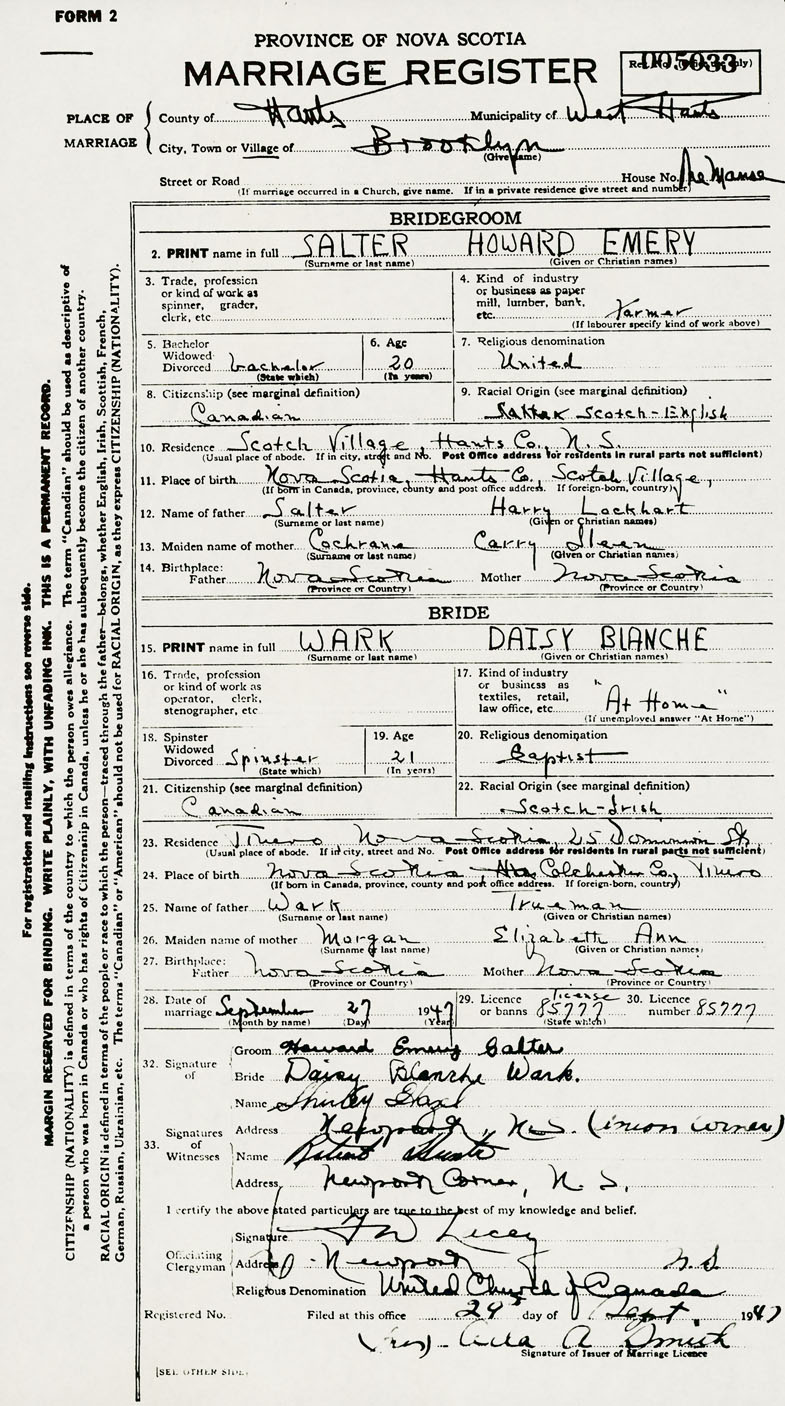 FORM 2
PROVINCE OF NOVA SCOTIA
MARRIAGE REGISTER
005033
Reg. No. (Office use only)
PLACE OF MARRIAGE
County of Hants Municipality of West Hants
City, Town or Village of Brooklyn
(Give name)
Street or Road House No. The Manse
(If marriage occurred in a Church, give name. If in a private residence give street and number)
BRIDEGROOM
2. PRINT name in full SALTER HOWARD EMERY
(Surname or last name) (Given or Christian names)
3. Trade, profession or kind of work as spinner, grader, clerk, etc.
4. Kind of industry or business as paper mill, lumber, bank, etc. Farmer
(If labourer specify kind of work above)
5. Bachelor Widowed Divorced bachelor
(State which)
6. Age 20
(In years)
7. Religious denomination
United
8. Citizenship (see marginal definition)
Canadian
9. Racial Origin (see marginal definition)
Scotch-English
10. Residence Scotch Village, Hants Co., N. S.
(Usual place of abode. If in city, street and No. Post Office address for residents in rural parts not sufficient)
11. Place of birth Nova Scotia, Hants Co., Scotch Village,
(If born in Canada, province, county and post office address. If foreign-born, country)
12. Name of father Salter Harry Lockhart
(Surname or last name) (Given or Christian names)
13. Maiden name of mother Cochrane Carry
(Surname or last name) (Given or Christian names)
14. Birthplace:
Father Nova Scotia Mother Nova Scotia
(Province or Country) (Province or Country)
BRIDE
15. PRINT name in full WARK DAISY BLANCHE
(Surname or last name) (Given or Christian names)
16. Trade, profession or kind of work as operator, clerk, stenographer, etc
17. Kind of industry or business as textiles, retail, law office, etc. "At Home"
(If unemployed answer "At Home")
18. Spinster Widowed Divorced Spinster
(State which)
19. Age 21
(In years)
20. Religious denomination
Baptist
21. Citizenship (see marginal definition)
Canadian
22. Racial Origin (see marginal definition)
Scotch-Irish
23. Residence Truro Nova Scotia, 25 Dominion St.
(Usual place of abode. If in city, street and No. Post Office address for residents in rural parts not sufficient)
24. Place of birth Nova Scotia Colchester Co., Truro
(If born in Canada, province, county and post office address. If foreign-born, country)
25. Name of father Wark Trueman
(Surname or last name) (Given or Christian names)
26. Maiden name of mother Morgan Elizabeth Ann
(Surname or last name) (Given or Christian names)
27. Birthplace:
Father Nova Scotia Mother Nova Scotia
(Province or Country) (Province or Country)
28. Date of marriage September 27 1947
(Month by name) (Day) (Year)
29. Licence or banns license 85777
(State which)
30. Licence number 85777
32. Signature of
Groom Howard Emery Salter
Bride Daisy Blanche Wark.
33. Signatures of Witnesses
Name Shirley
Address Newport, N.S. (Union Corner)
Name
Address Newport Corner, N. S.
I certify the above stated particulars are true to the best of my knowledge and belief.
Officiating Clergyman
Signature
Address Newport N.S
Religious Denomination United Church of Canada
Registered No. Filed at this office 29 day of Sept. 1947
(Mrs) A Smith
Signature of Issuer of Marriage Licence
[SEE OTHER SIDE.
For registration and mailing instructions see reverse side.
MARGIN RESERVED FOR BINDING. WRITE PLAINLY, WITH UNFADING INK. THIS IS A PERMANENT RECORD.
CITIZENSHIP (NATIONALITY) is defined in terms of the country to which the person owes allegiance. The term "Canadian" should be used as descriptive of
a person who was born in Canada or who has rights of Citizenship in Canada, unless he or she has subsequently become the citizen of another country.
RACIAL ORIGIN is defined in terms of the people or race to which the person—traced through the father—belongs, whether English, Irish, Scottish, French,
German, Russian, Ukrainian, etc. The terms "Canadian" or "American" should not be used for RACIAL ORIGIN, as they express CITIZENSHIP (NATIONALITY).